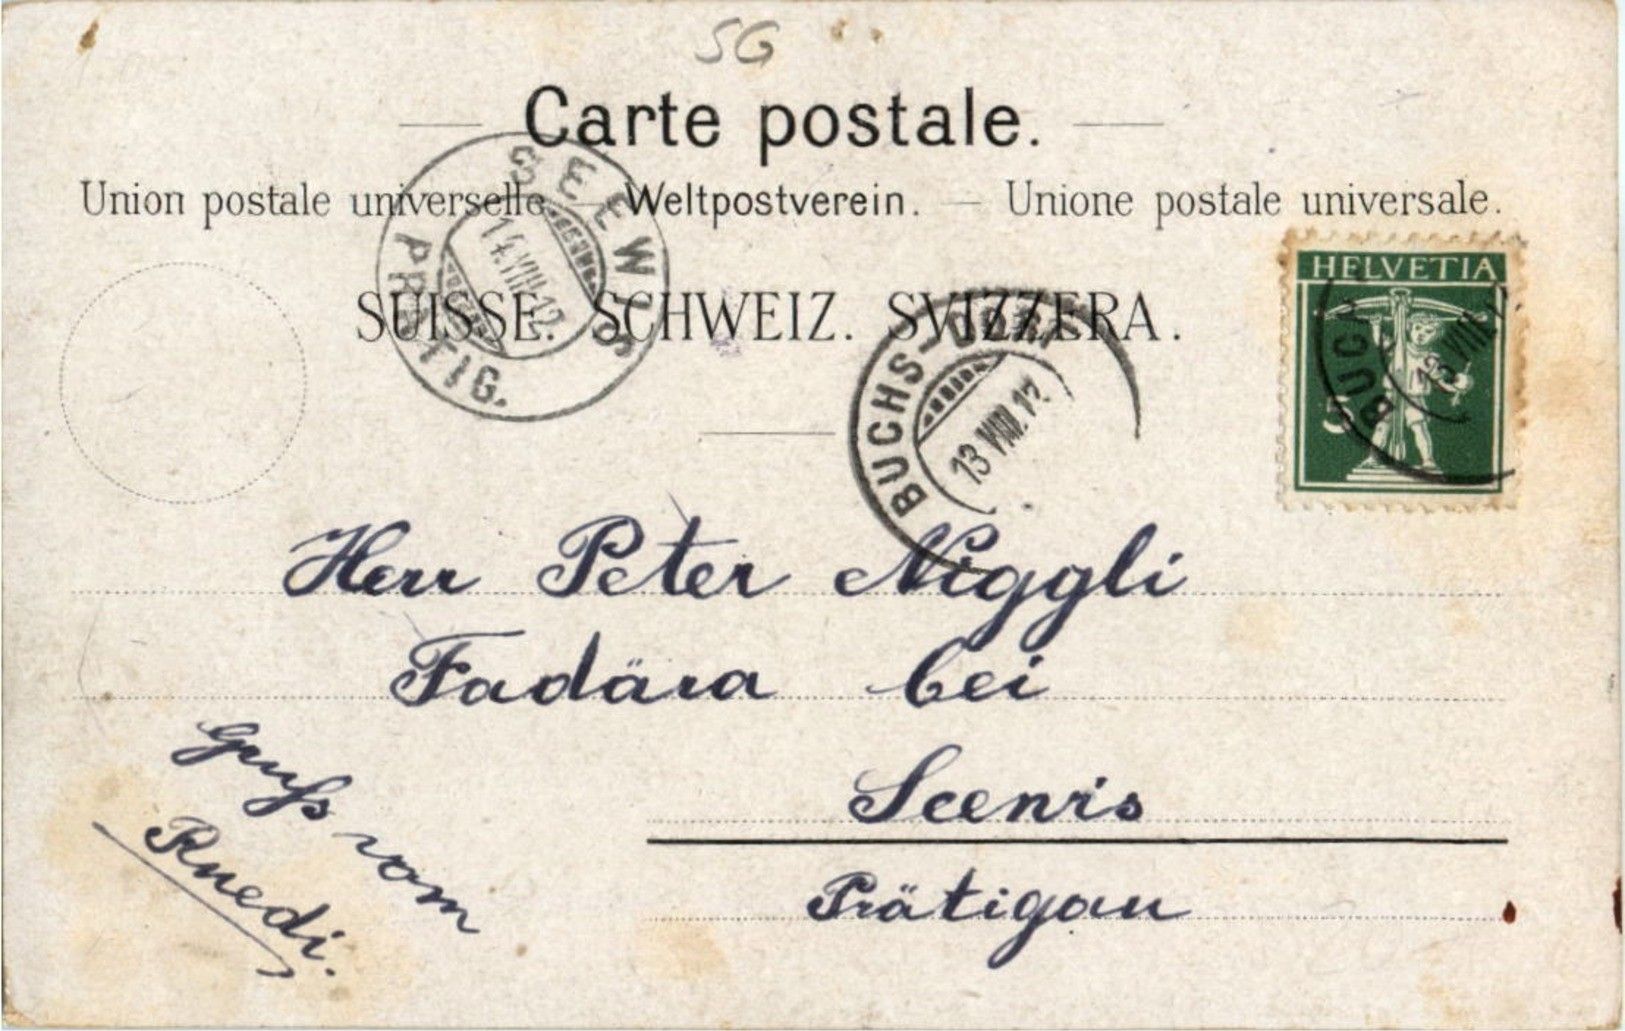 SG
Carte postale.
Union postale universelle. — Weltpostverein. — Unione postale universale.
SUISSE. SCHWEIZ. SVIZZERA.
SEEWIS
PRÄTIG.
14.VIII.12
BUCHS-DORF
13.VIII.12
HELVETIA
5
BUCH
VIII
Herr Peter Niggli
Fadära bei
Seewis
Prätigau
Gruss vom
Ruedi.